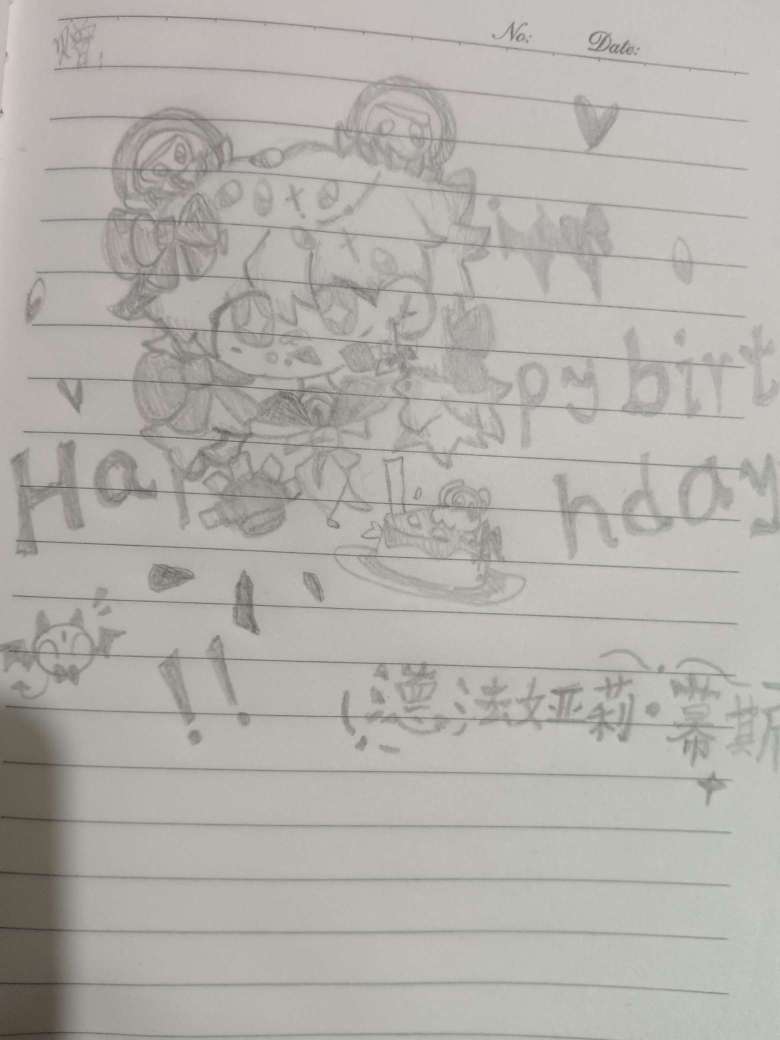 No: Date:
Happy birt
hday
!!
法娅莉·幕斯